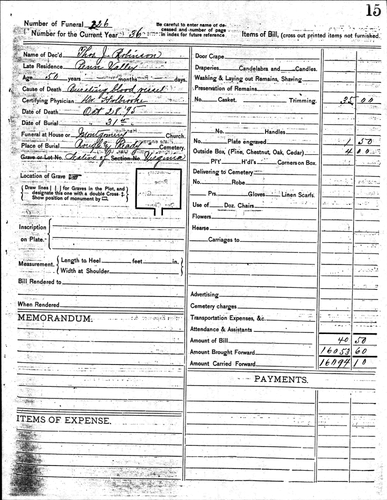 15
Number of Funeral 226
Number for the Current Year 56
Be carefu to enter name of de-
ceased and number of page
in index for future reference
Items of Bill, (cross out printed items not furnished.
Name of Dec'd Thos J. Robinson
Late Residence Penn Valley
Age 50 years months days
Cause of Death blood vessel
Certifying Physician Dr Holbrooke
Date of Death Oct 28, 95
Date of Burial 31st
Funeral at House or Montgomery Church.
Place of Burial Rough & Ready Cemetery.
Grave or Lot No. Native of Section No. Virginia
Location of Grave
(Draw lines | | for Graves in the Plot, and
designate this one with a double Cross
Show position of monument by
Inscription
on Plate.
Measurement. Length to Heel feet in.
Width at Shoulder
Bill Rendered to
When Rendered
MEMORANDUM.
ITEMS OF EXPENSE.
Door Crape
Draperies Candelabra and Candles.
Washing & Laying out Remains, Shaving
Preservation of Remains
No. Casket. Trimming. 35 00
No. Handles
Plate engraved 1 50
Outside Box (Pine, Chestnut, Oak, Cedar) 4 00
P'l'y H'd'l's Corners on Box.
Delivering to Cemetery
No. Robe
Prs. Gloves Linen Scarfs.
Use of Doz. Chairs
Flowers
Hearse
Carriages to
Advertising
Cemetery charges
Transportation Expenses, &c
Attendance & Assistants
Amount of Bill 40 50
Amount Brought Forward 16053 60
Amount Carried Forward 16094 10
PAYMENTS.